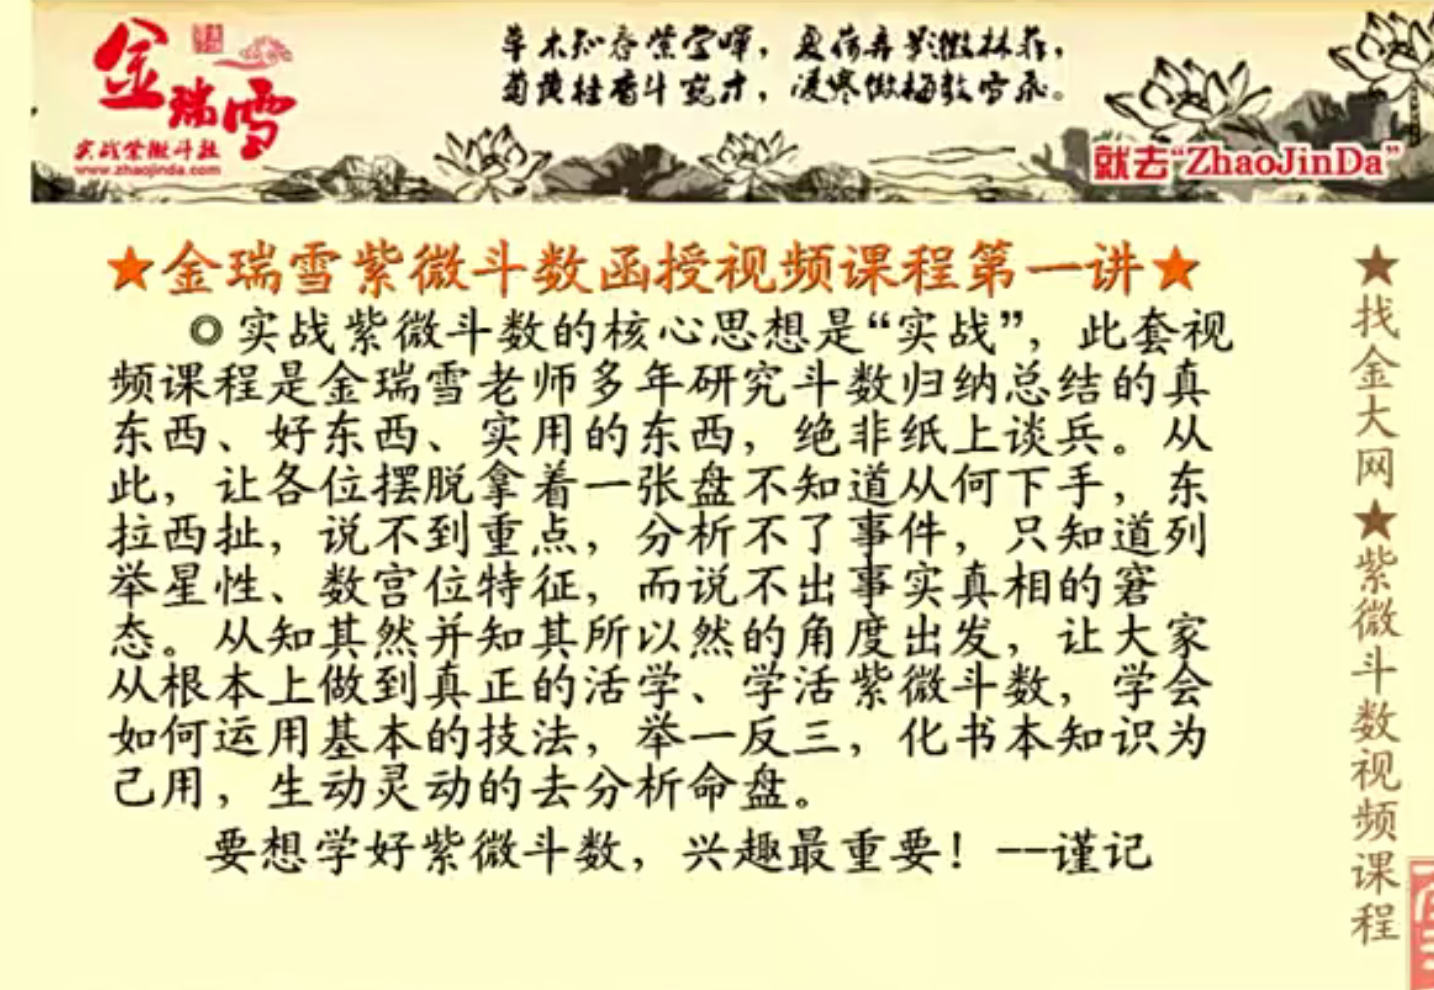 金瑞雪
实战紫微斗数
www.zhaojinda.com
草木知春紫宫晖，夏荷弄影微林菲，
菊黄桂香斗宛才，凌寒傲梅数雪飛。
就去“ZhaoJinDa”
★金瑞雪紫微斗数函授视频课程第一讲★
◎实战紫微斗数的核心思想是“实战”，此套视
频课程是金瑞雪老师多年研究斗数归纳总结的真
东西、好东西、实用的东西，绝非纸上谈兵。从
此，让各位摆脱拿着一张盘不知道从何下手，东
拉西扯，说不到重点，分析不了事件，只知道列
举星性、数宫位特征，而说不出事实真相的窘
态。从知其然并知其所以然的角度出发，让大家
从根本上做到真正的活学、学活紫微斗数，学会
如何运用基本的技法，举一反三，化书本知识为
己用，生动灵动的去分析命盘。
要想学好紫微斗数，兴趣最重要！--谨记
★找金大网★紫微斗数视频课程